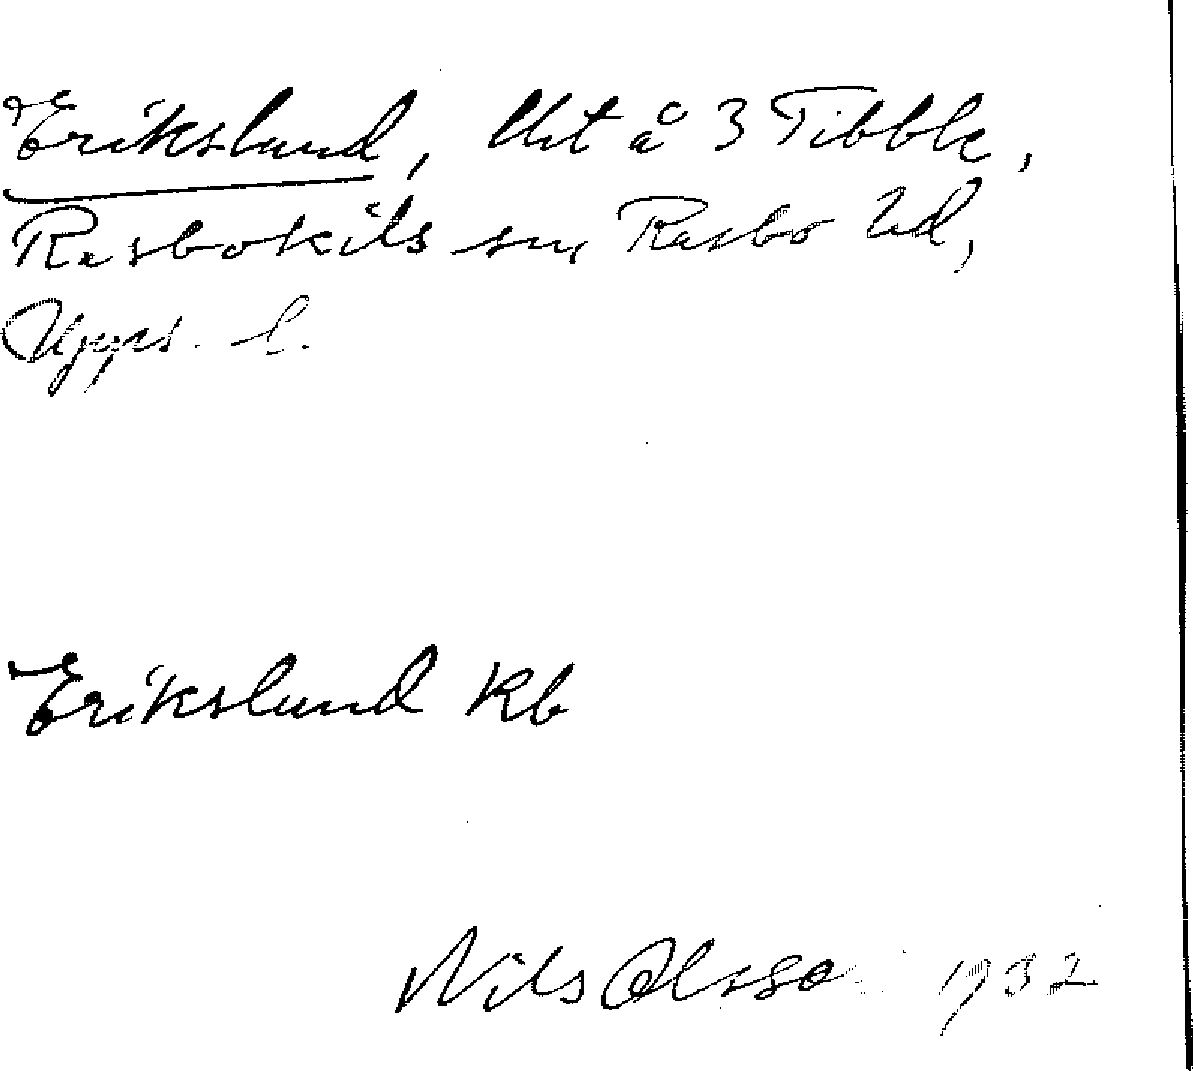 Erikslund, lht å 3 Tibble,
Rasbokils sn, Rasbo hd,
Upps. l.
Erikslund Kb
Nils Olsson 1932